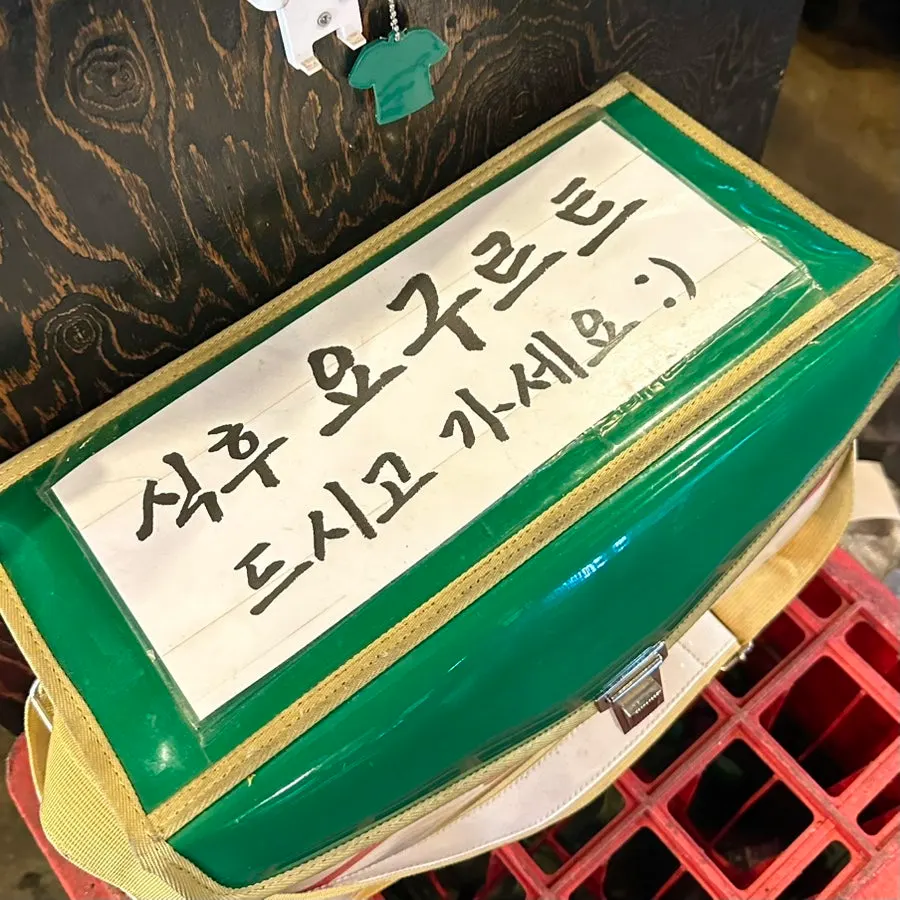 식후 요구르트
드시고 가세요 :)